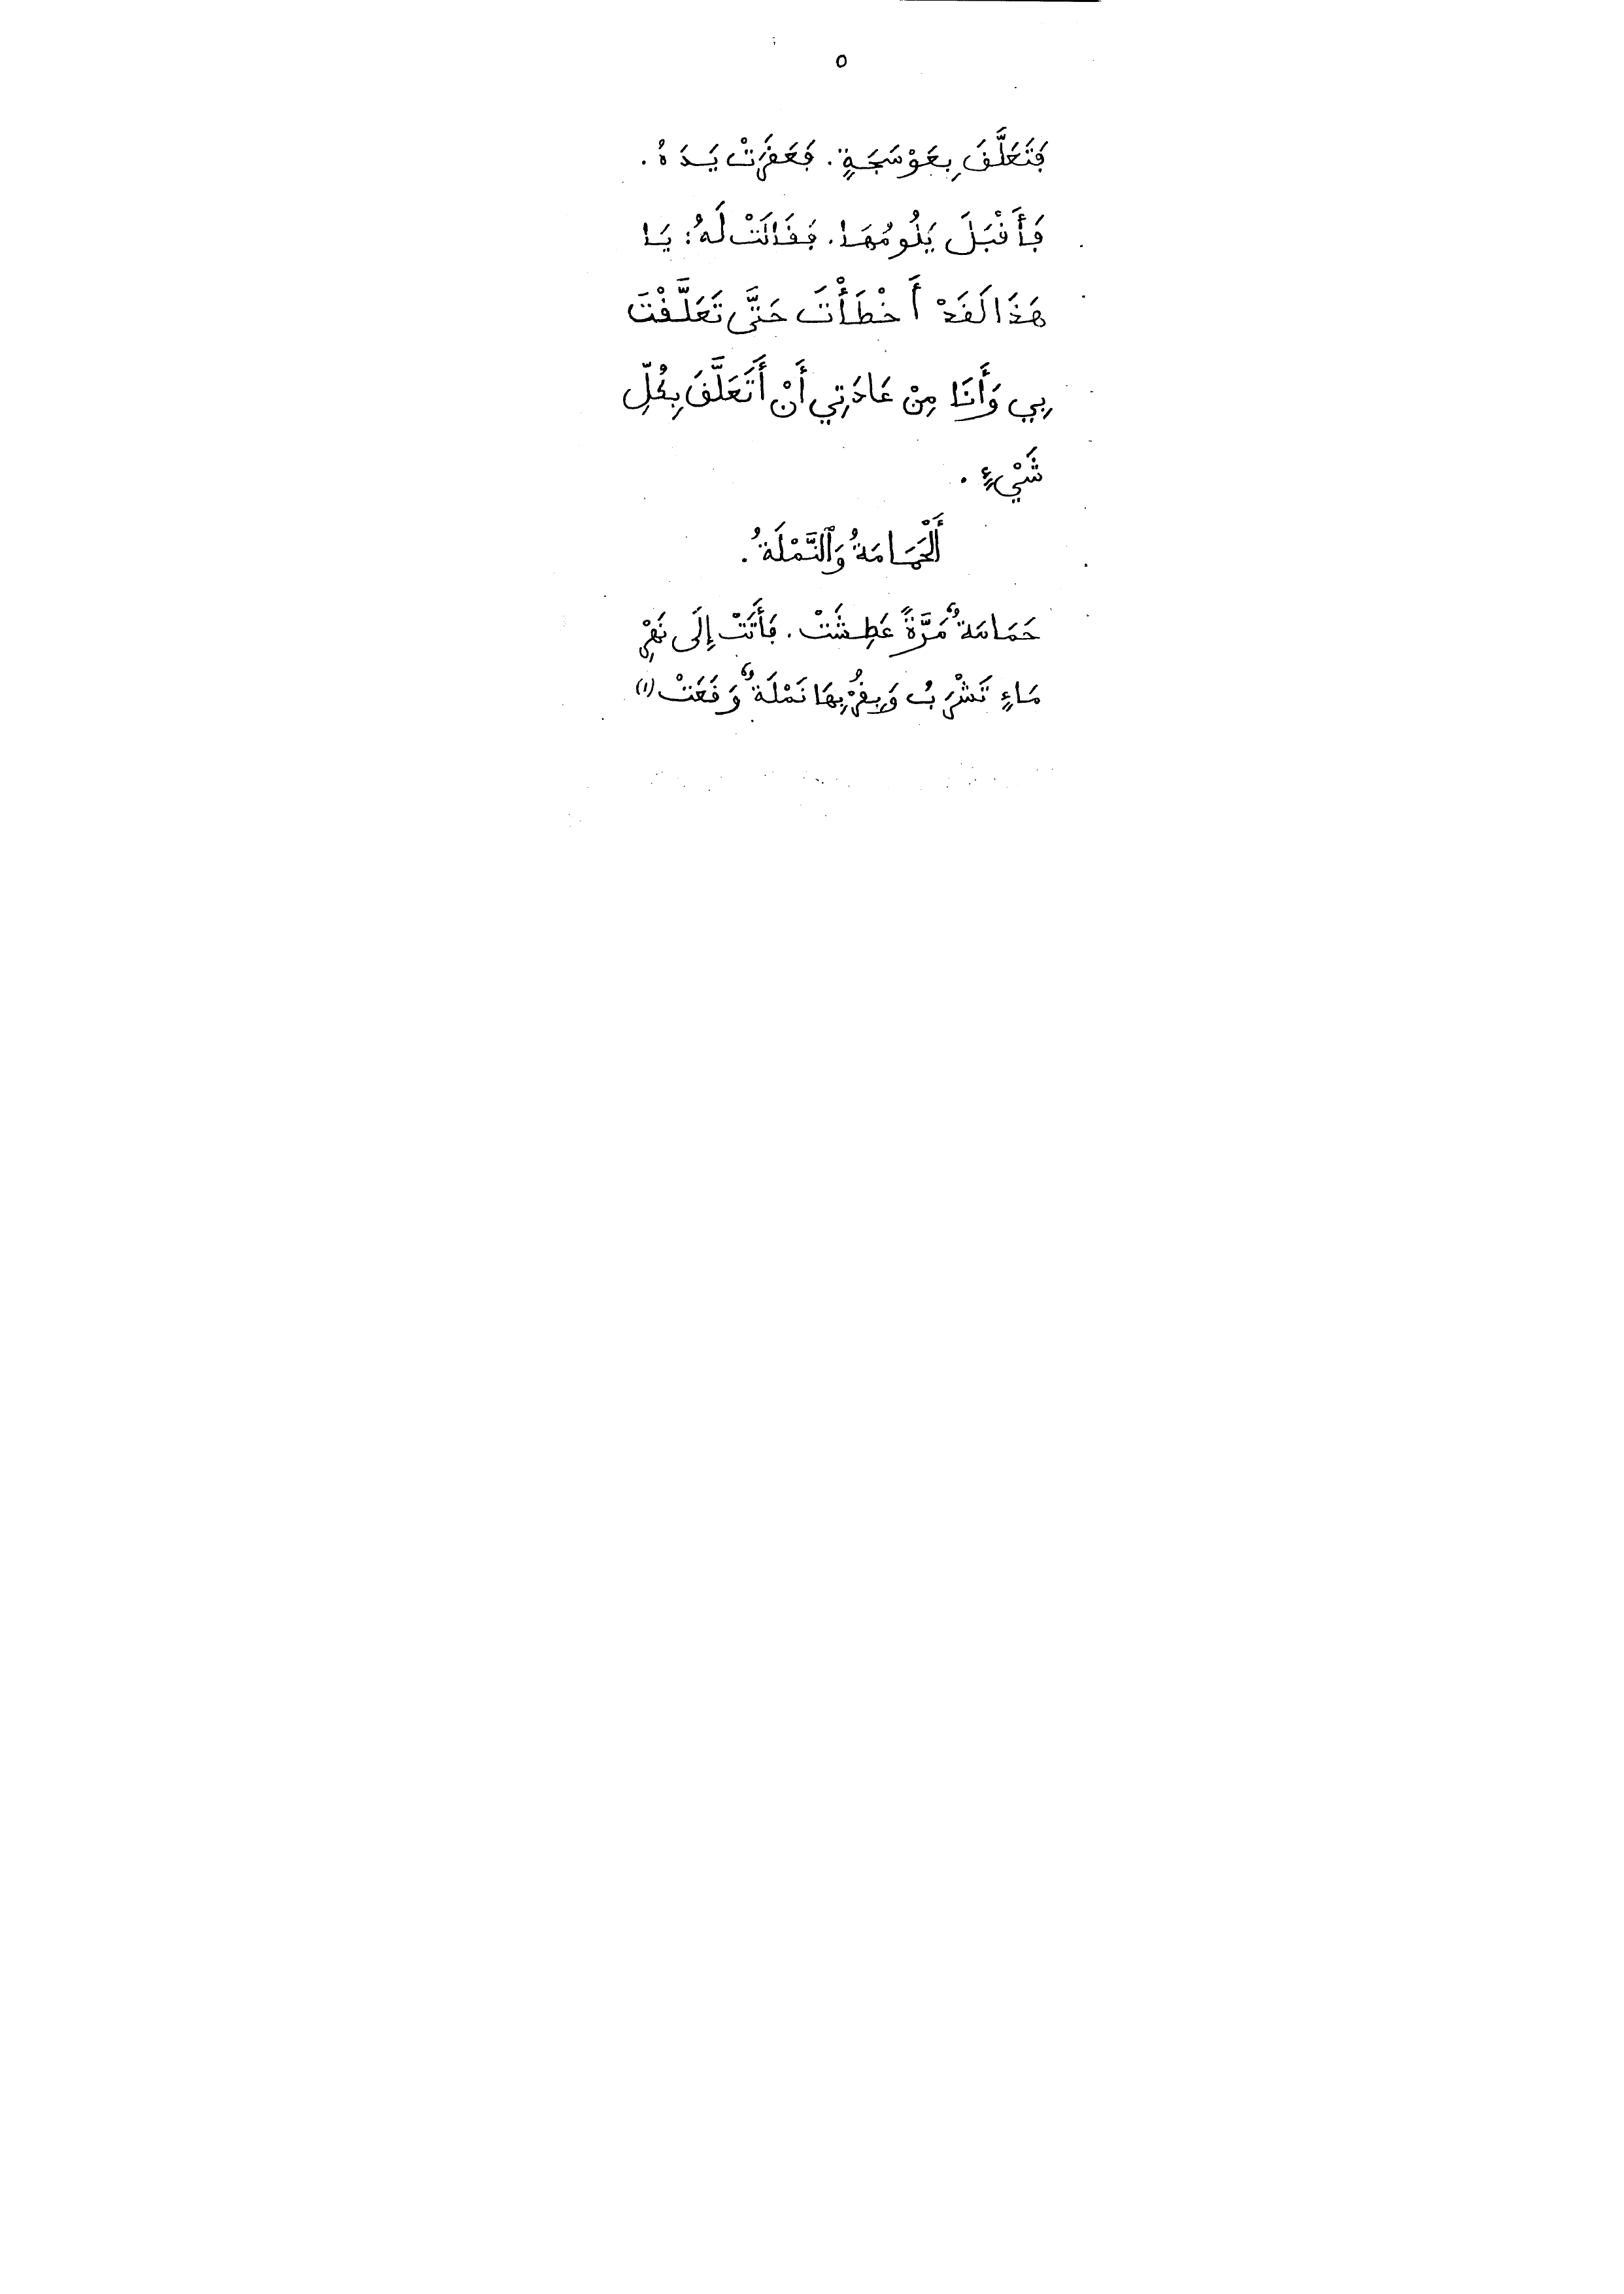 ٥
فَتَعَلَّقَ بِعَوْسَجَةٍ. فَعَقَرَتْ يَدَهُ.
فَأَقْبَلَ يَلُومُهَا. فَقَالَتْ لَهُ: يَا
هَذَا لَقَدْ أَخْطَأْتَ حَتَّى تَعَلَّقْتَ
بِي وَأَنَا مِنْ عَادَتِي أَنْ أَتَعَلَّقَ بِكُلِّ
شَيْءٍ.
أَلْحَمَامَةُ وَٱلنَّمْلَةُ.
حَمَامَةٌ مَرَّةً عَطِشَتْ. فَأَتَتْ إِلَى نَهْرِ
مَاءٍ تَشْرَبُ وَبِقُرْبِهَا نَمْلَةٌ وَقَعَتْ (١)